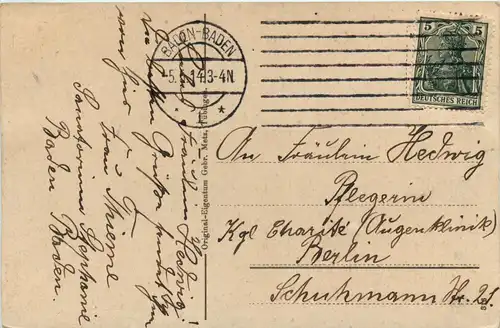 Liebes Fräulein Hedwig!
die besten Grüße sendet Ihnen
von hier
Frau Thieme
Sanatorium
Baden Baden.
BADEN-BADEN
-5. 14.3-4N
5 5
DEUTSCHES REICH
Original-Eigentum Gebr. Metz, Tübingen.
An Fräulein Hedwig
Pflegerin
Kgl Charité (Augenklinik)
Berlin
Schuhmann Str. 21.